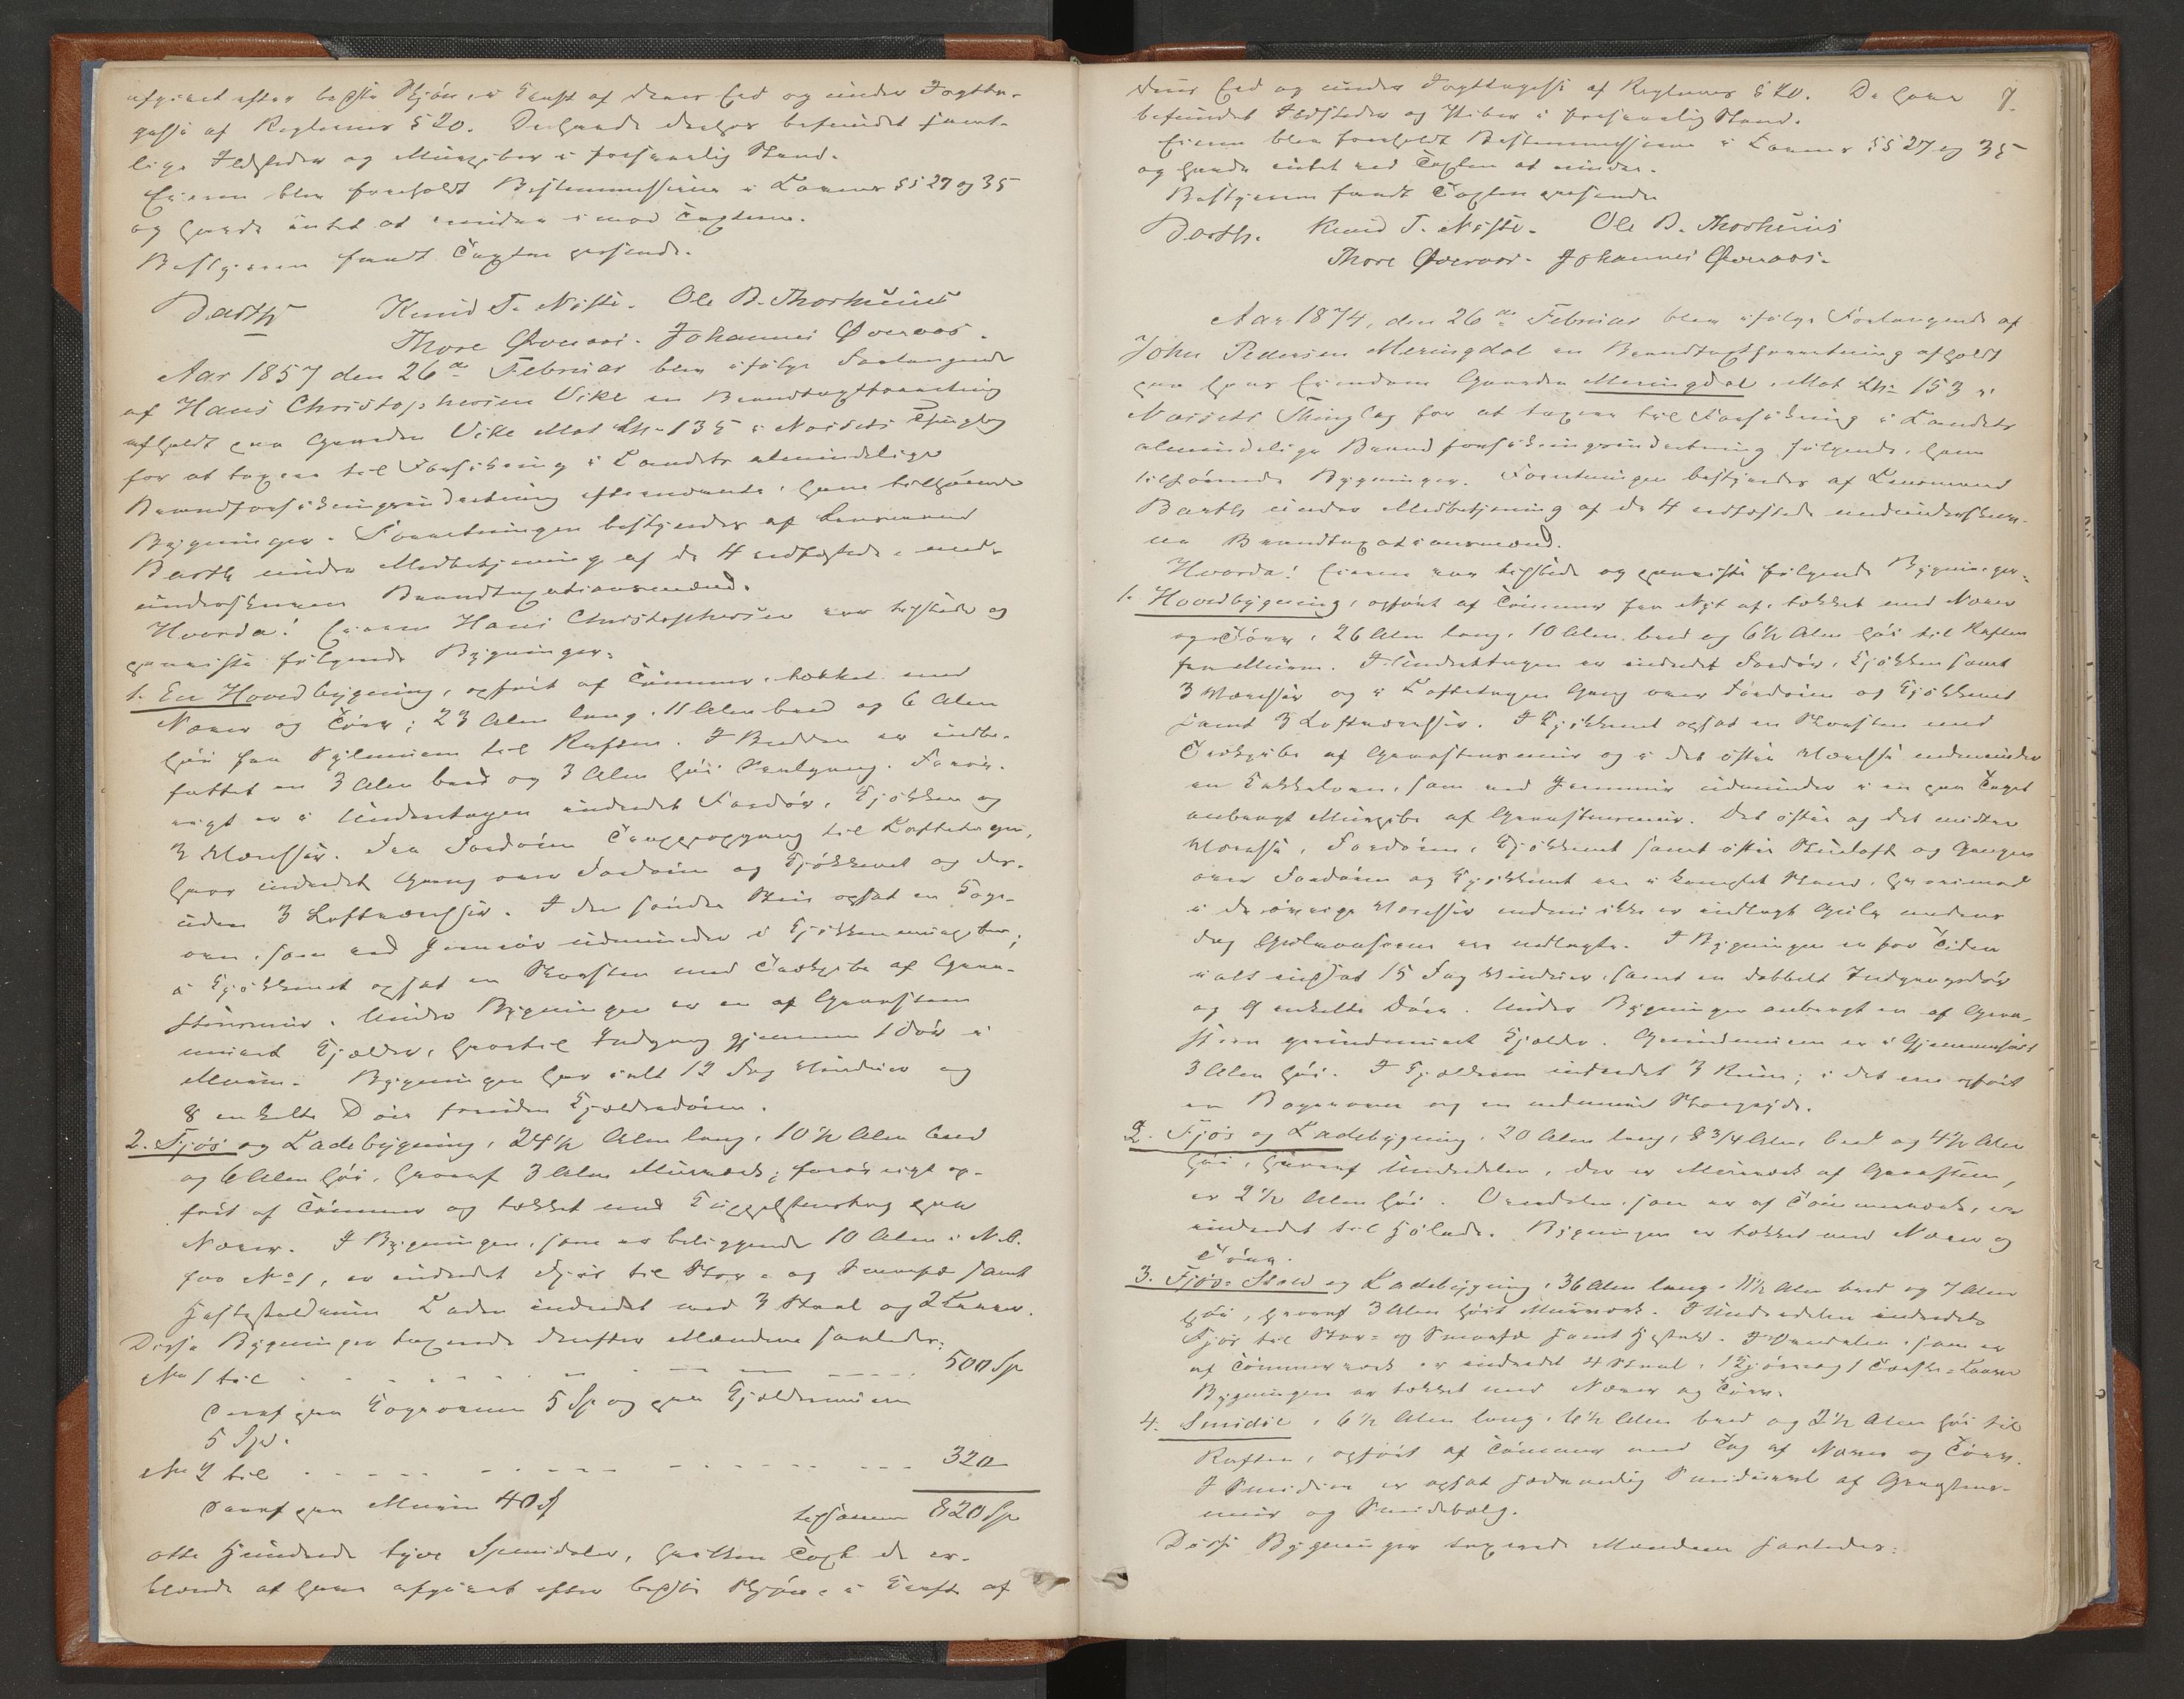 afgivet efter bedste Skjøn, i Kraft af deres Eed og under Iagtta-
gelse af Reglernes § 20. De havde derhos befundet samt-
lige Ildsteder og Murpiber i forsvarlig Stand.
Eieren blev foreholdt Bestemmelserne i Lovens §§ 27 og 35
og havde intet at erindre imod Taxten.
Bestyreren fandt Taxten passende.
Barth Knud T. Neste. Ole B. Thorhuus
Thore Øveraas. Johannes Øveraas.
Aar 1857 den 26de Februar blev ifølge Forlangende
af Hans Christophersen Vike en Brandtaxtforretning
afholdt paa Gaarden Vike Mat. Lh. 135 i Næssets Thinglag
for at taxere til Forsikring i Landets almindelige
Brandforsikringsindretning efternævnte, ham tilhørende
Bygninger. Forretningen bestyredes af Lensmand
Barth under Medbetjening af de 4 edfæstede, med-
underskrevne Brandtaxationsmænd.
Hvorda! Eieren Hans Christophersen var tilstede og
paaviste følgende Bygninger:
1. En Hovedbygning, opført af Tømmer, tækket med
Næver og Törv; 23 Alen lang, 11 Alen bred og 6 Alen
høi fra Syldmuren til Raften. I Bredden er indbe-
fattet en 3 Alen bred og 3 Alen høi Svalgang. Forøv-
rigt er i Underetagen indredet Fordør, Kjøkken og
3 Værelser. Fra Fordøren Trappeopgang til Loftetagen,
hvor indredet Gang over Fordøren og Kjøkkenet og des-
uden 3 Loftværelser. I den søndre Stue opsat en Koge-
ovn, som ved Jernrör udmunder i Kjøkkenmurpiben;
i Kjøkkenet opsat en Skorsten med Tækpibe af Graa-
steensmur. Under Bygningen er en af Graasteen
muret Kjælder, hvortil Indgang gjennem 1 Dør i
Muren. Bygningen har ialt 12 Fag Vinduer og
8 enkelte Døre foruden Kjælderdøren.
2. Fjøs og Ladebygning, 24½ Alen lang, 10½ Alen bred
og 6 Alen høi, hvoraf 3 Alen Muurværk; forøvrigt op-
ført af Tømmer og tækket med Tuppelsteenstag paa
Næver. I Bygningen, som er beliggende 10 Alen i N.O.
fra No 1, er indredet Fjøs til Stor- og Smaafæ samt
Hestestaldrum. Laden indredet med 3 Staal og 2 Laaver.
Disse Bygninger taxerede derefter Mændene saaledes:
No 1 til 500 Sp
Deraf paa Kogeovnen 5 Sp og paa Kjældermuren
5 Spd.
No 2 til 320
deraf paa Muren 40 Sp tilsammen 820 Sp
otte Hundrede tyve Speciedaler, hvilken Taxt de er-
klærede at have afgivet efter bedste Skjøn, i Kraft af
deres Eed og under Iagttagelse af Reglernes § 20. De have 8.
befundet Ildsteder og Piber i forsvarlig Stand.
Eieren blev foreholdt Bestemmelserne i Lovens §§ 27 og 35
og havde intet ved Taxten at erindre.
Bestyreren fandt Taxten passende
Barth. Knud T. Neste. Ole B. Thorhuus
Thore Øveraas. Johannes Øveraas.
Aar 1874, den 26de Februar blev ifølge Forlangende af
John Pedersen Meringdal en Brandtaxtforretning afholdt
paa hans Eiendom Gaarden Meringdal, Mat. Lh. 153 i
Næssets Thinglag for at taxere til Forsikring i Landets
almindelige Brandforsikringsindretning følgende, ham
tilhørende Bygninger. Forretningen bestyredes af Lensmand
Barth under Medbetjening af de 4 edfæstede medunderskrev-
ne Brandtaxationsmænd.
Hvorda! Eieren var tilstede og paaviste følgende Bygninger:
1. Hovedbygning, opført af Tømmer fra Nyt af, tækket med Næver
og Törv, 26 Alen lang, 10 Alen bred og 6½ Alen høi til Raften
fra Muren. I Underetagen er indredet Fordør, Kjøkken samt
3 Værelser og i Loftetagen Gang over Fordøren og Kjøkkenet
samt 3 Loftværelser. I Kjøkkenet opsat en Skorsten med
Tækpibe af Graasteensmur og i det østre Værelse
en Kakkelovn, som ved Jernrør udmunder i en paa Taget
anbragt Murpibe af Graasteensmur. Det østre og det midtre
Værelse, Fordøren, Kjøkkenet samt østre Stueloft og Gangen
over Fordøren og Kjøkkenet er i komplet Stand, hvorimod
i de øvrige Værelser endnu ikke er indlagt Gulv medens
dog Gulvaasene ere nedlagte. I Bygningen er for Tiden
i alt indsat 15 Fag Vinduer, samt en dobbelt Indgangsdør
og 9 enkelte Døre. Under Bygningen anbragt en af Graa-
steen grundmuret Kjælder. Grundmuren er i Gjennemsnit
3 Alen høi. I Kjælderen indredet 3 Rum; i det ene opført
en Bagerovn og en indmuret Bryggepande.
2. Fjøs og Ladebygning, 20 Alen lang, 8¾ Alen bred og 4½ Alen
høi, hvoraf Underdelen, der er Muurværk af Graasteen,
er 2½ Alen høi. Overdelen, som er af Tømmerværk, er
indredet til Hølade. Bygningen er tækket med Næver og
Törv.
3. Fjøs- Stald og Ladebygning, 36 Alen lang, 11½ Alen bred og 7 Alen
høi, hvoraf 3 Alen høit Muurværk. I Underdelen indredet
Fjøs til Stor- og Smaafæ samt Hestald. I Overdelen, som er
af Tømmerværk er indredet 4 Staal, 1 Kjøre og 1 Tærske-Laave
Bygningen er tækket med Næver og Törv.
4. Smidie, 6½ Alen lang, 6½ Alen bred og 2½ Alen høi til
Raften, opført af Tømmer med Tag af Næver og Törv.
I Smidien er opsat sædvanlig Smideaarl af Graasteens-
mur og Smidebælg.
Disse Bygninger taxerede Mændene saaledes: